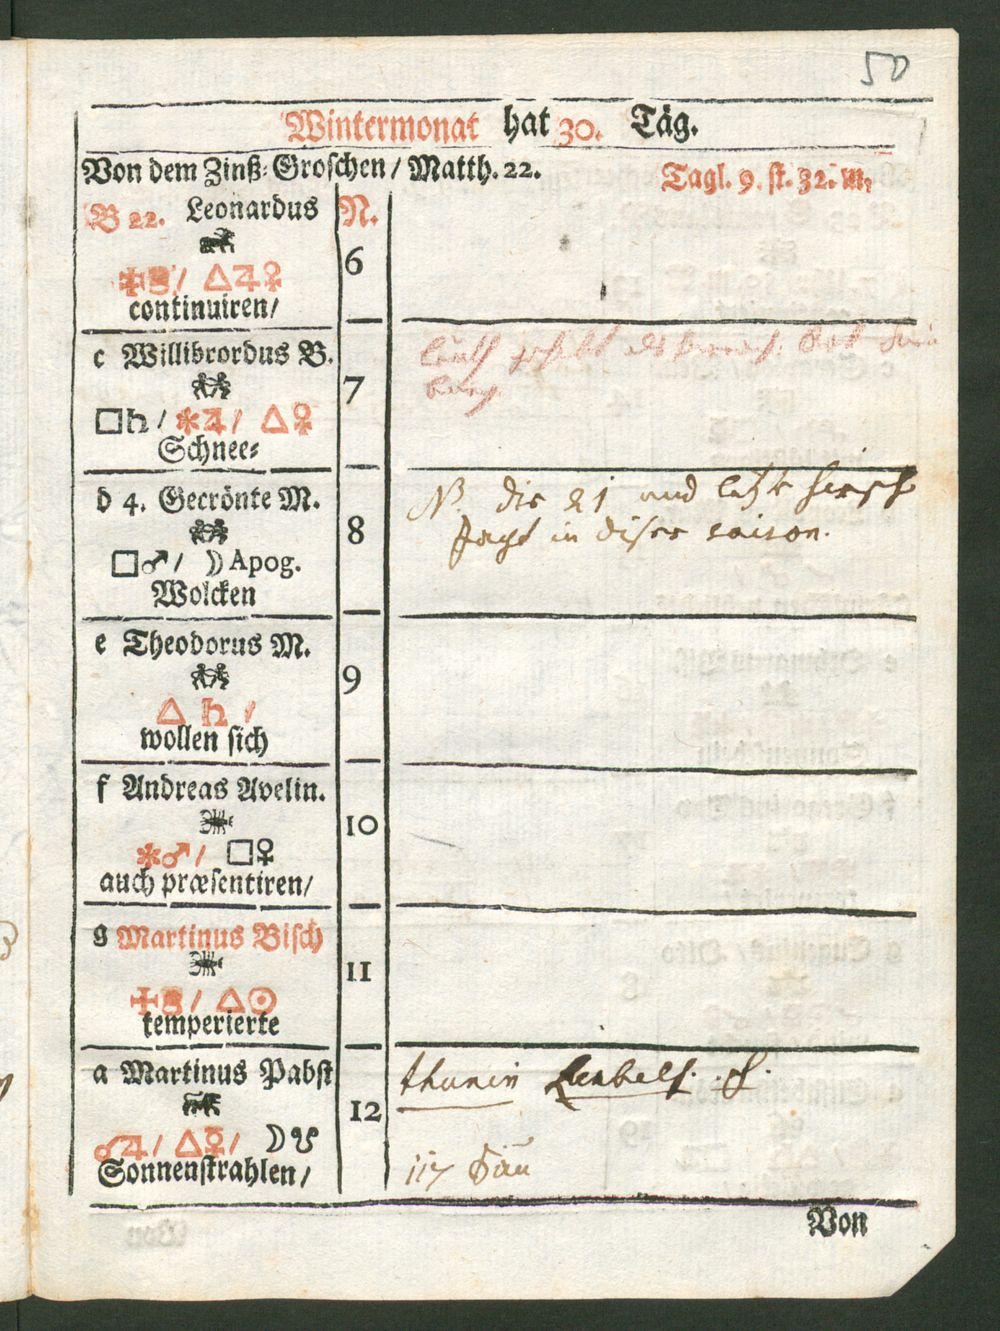 50
Wintermonat hat 30. Täg.
Von dem Zinß-Groschen / Matth. 22.
Tagl. 9. st. 32. m.
B 22. Leonardus
N.
6
△♃♀
continuiren/
c Willibrordus B.
7
□♄ / ✱♃ / △♀
Schnee-
d 4. Gecrönte M.
8
NB. die 21 und letzte hirsch
Jagt in diser saison.
□♂ / ☽ Apog.
Wolcken
e Theodorus M.
9
△ ♄ /
wollen sich
f Andreas Avelin.
10
✱♂ / □♀
auch præsentiren/
g Martinus Bisch
11
/ △☉
temperierte
a Martinus Pabst
12
☌♃ / △☿ / ☽☋
Sonnenstrahlen/
117
Von